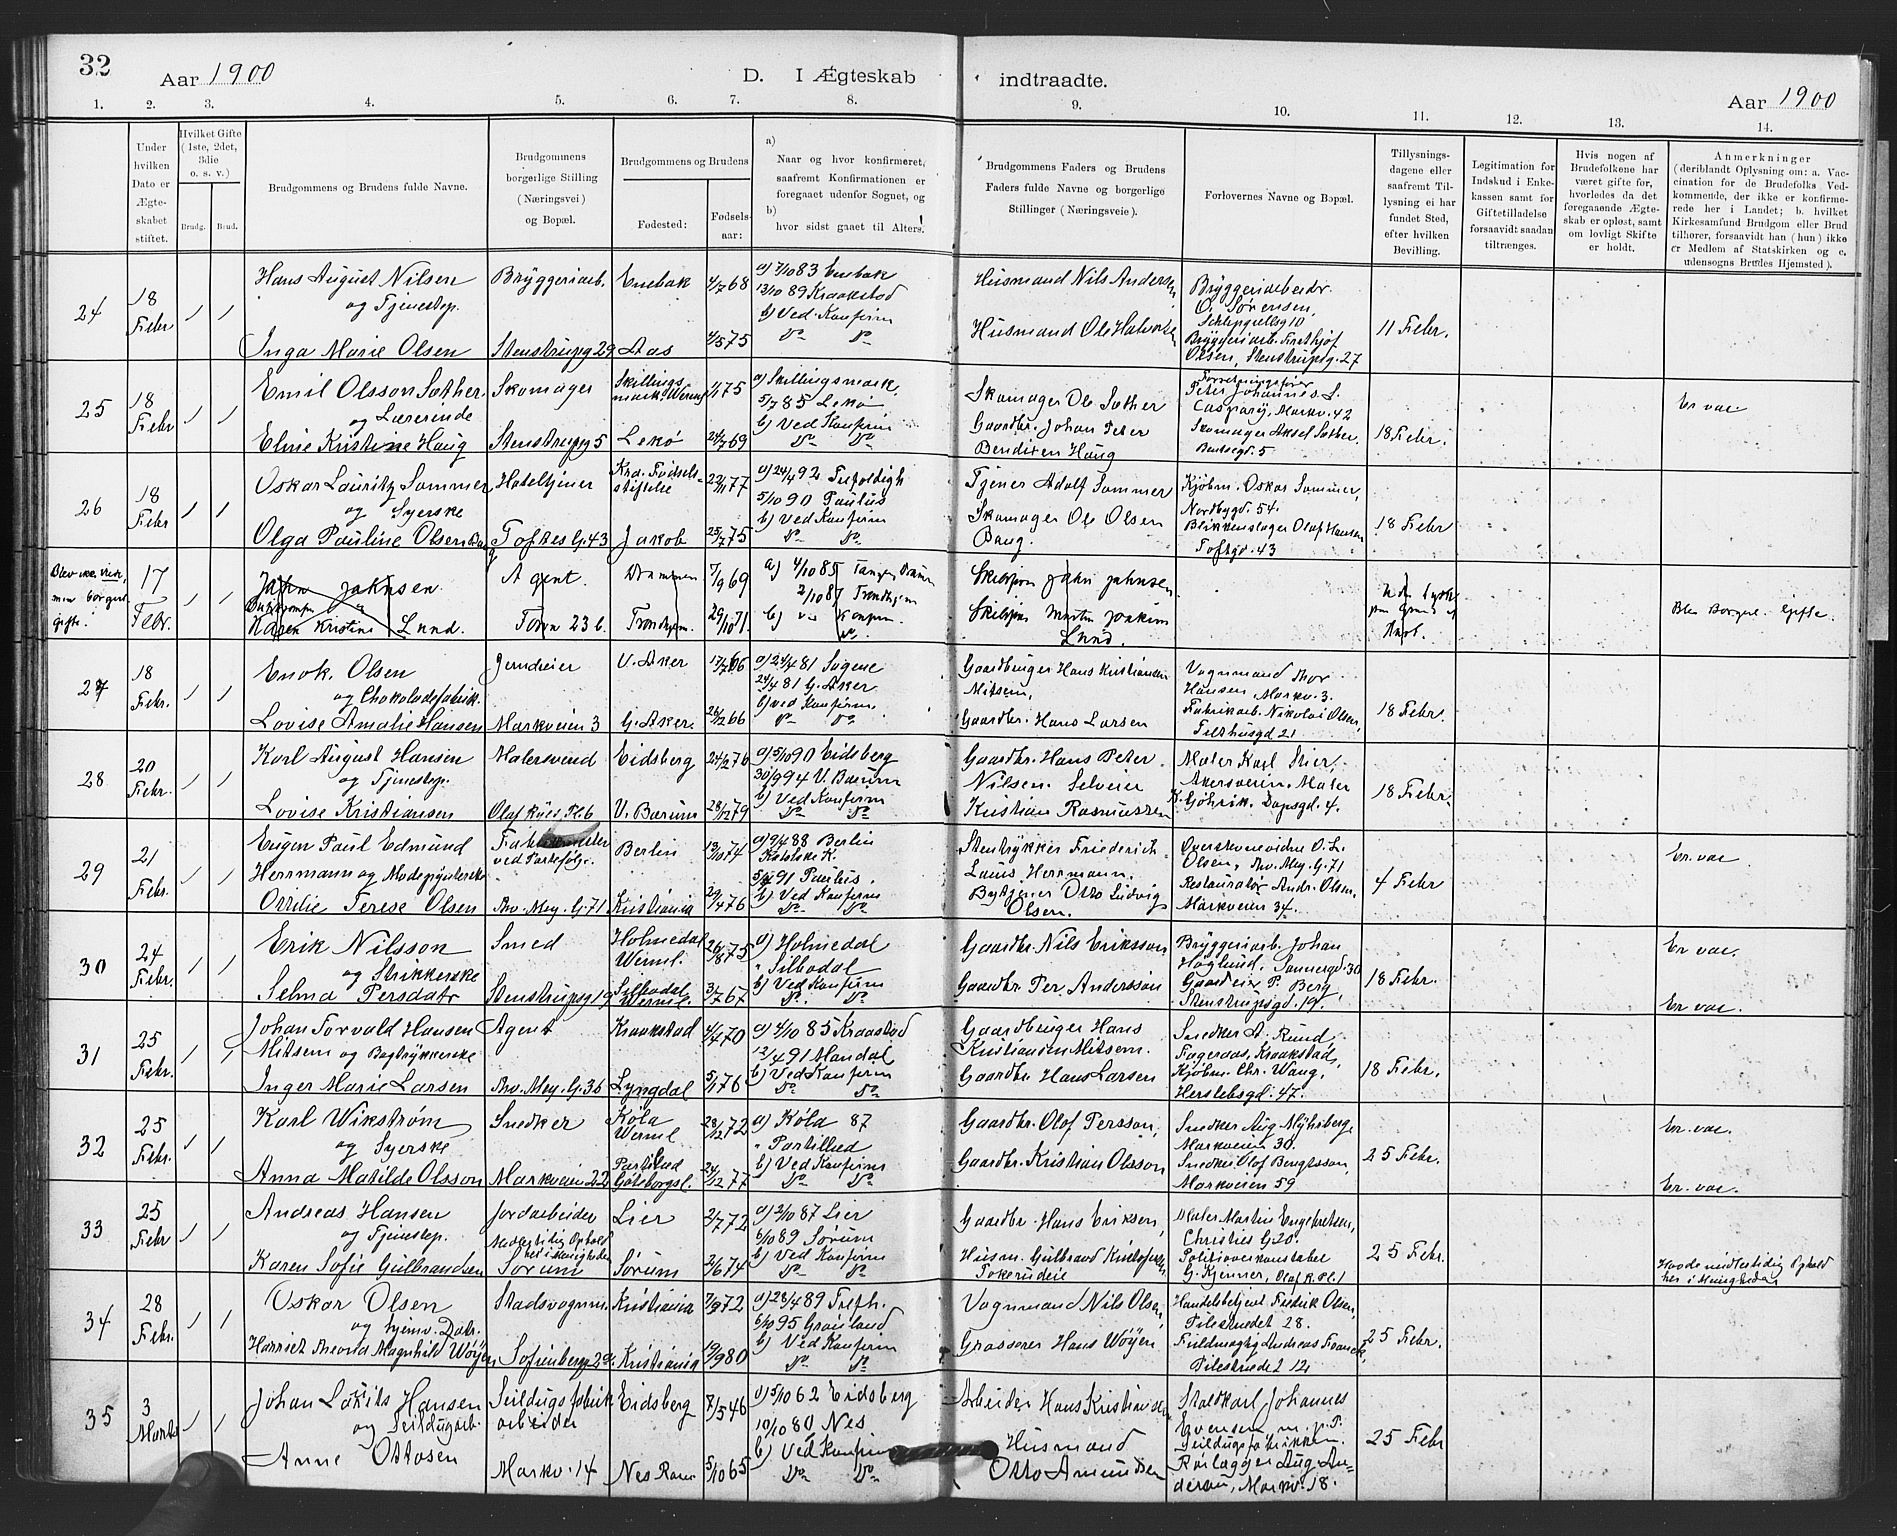 32
Aar 1900
D. I Ægteskab
indtraadte.
Aar 1900
1. 2. 3. 4. 5. 6. 7. 8. 9. 10. 11. 12. 13. 14.
Under hvilken Dato er Ægteskabet stiftet.
Hvilket Gifte (1ste, 2det, 3die o. s. v.)
Brudg. Brud.
Brudgommens og Brudens fulde Navne.
Brudgommens borgerlige Stilling (Næringsvei) og Bopæl.
Brudgommens og Brudens
Fødested:
Fødselsaar:
a) Naar og hvor konfirmeret, saafremt Konfirmationen er foregaaet udenfor Sognet, og
b) hvor sidst gaaet til Alters.
Brudgommens Faders og Brudens Faders fulde Navne og borgerlige Stillinger (Næringsveie).
Forlovernes Navne og Bopæl.
Tillysningsdagene eller saafremt Tillysning ei har fundet Sted, efter hvilken Bevilling.
Legitimation for Indskud i Enkekassen samt for Giftetilladelse forsaavidt saadan tiltrænges.
Hvis nogen af Brudefolkene har været gifte før, hvorledes da det foregaaende Ægteskab er opløst, samt om lovligt Skifte er holdt.
Anmerkninger (deriblandt Oplysning om: a. Vaccination for de Brudefolks Vedkommende, der ikke er konfirmerede her i Landet; b. hvilket Kirkesamfund Brudgom eller Brud tilhører, forsaavidt han (hun) ikke er Medlem af Statskirken og c. udensogns Brudes Hjemsted).
24
18 Febr
Hans August Nilsen
og Tjenestep.
Inga Marie Olsen
Bryggeriarb.
Stenstrupg 29
Enebak
Aas
4/7 68
4/5 75
a) 7/10 83 Enebak
13/10 89 Kraakstad
b) Ved Konfirm
Do Do
Husmand Nils Andersen
Husmand Ole Halvorsen
Bryggeriarbeider
O. Sørensen,
Schleppegrellsg 10
Bryggeriarb. Fritthjof
Olsen, Stenstrupsg. 27
11 Febr.
25
18 Febr
Emil Olsson Sæther
og Lærerinde
Eline Kristine Haug
Skomager
Stenstrupg 5
Skillingsmark, Werml
Lekø
1/1 75
24/7 69
a) Skillingsmark,
5/7 85 Lekø
b) Ved Konfirm
Do Do
Skomager Ole Sæther
Gaardbr. Johan Peter
Bendixen Haug
Forretningsfører
Peter Johannes S.
Caspary, Markv. 42
Skomager Aksel Sæther,
18 Febr.
Er vac
26
18 Febr
Oskar Lauritz Sommer
og Syerske
Olga Pauline Olsen Baug
Hoteltjener
Toftes G. 43
Kra. Fødselsstiftelse
Jakob
23/11 77
25/7 75
a) 24/4 92 Trefoldigh
5/10 90 Paulus
b) Ved Konfirm
Do Do
Tjener Adolf Sommer
Skomager Ole Olsen
Baug.
Kjøbm. Oskar Sommer,
Nordbygd. 54.
Blikkenslager Olaf Hansen
Toftgd. 43
18 Febr
Blev ikke viet,
men borgerl.
gifte.
17 Febr.
John Johnsen.
Karen Kristine Lund.
Agent.
Torvn 23 b.
Drammen
Trondhjem.
7/9 69
29/10 71
a) 4/10 85 Tangen Dramm
2/10 87 Trondhjem
b) ved Konfirm.
Do
Skibsfører John Johnsen
Skibsfører Martin Joakim
Lund.
Blev Borgerl. Gifte.
27
18 Febr.
Enok. Olsen
og Chokoladefabrik.
Lovise Amalie Hansen
Jerndreier
Markveien 3
V. Aker
G. Aker.
17/7 66
26/12 66
a) 24/4 81 Sagene
24/4 81 G. Aker
b) ved Konfirm
Do Do
Gaardbruger Hans Kristiansen
Mitsem,
Gaardbr. Hans Larsen
Vognmand Thor
Hansen Markv. 3.
Fabrikarb. Nikolai Olsen,
Filthusgd 21
18 Febr.
28
20 Febr.
Karl August Hansen
og Tjenestep.
Lovise Kristiansen
Malersvend
Olaf Ryes Pl. 6
Eidsberg
V. Bærum
24/12 76
28/12 79
a) 5/10 90 Eidsberg
30/9 94 V. Bærum
b) Ved Konfirm
Do Do
Gaardbr. Hans Peter
Nilsen. Selveier
Kristian Rasmussen
Maler Karl Stier,
Akersveien. Maler
K. Gjøhrik. Dopsgd. 4.
18 Febr.
29
21 Febr.
Eugen Paul Edmund
Herrmann og Modepynterske
Ottilie Terese Olsen
ved Portefølj.
Thv. Mey. G. 71
Berlin
Kristiania
13/10 74
29/4 76
a) 9/4 88 Berlin
Katolske K.
5/4 91 Paulus.
b) Ved Konfirm
Do Do
Stentrykker Friederich
Louis Herrmann.
Bytjener Otto Ludvig
Olsen.
Overstevnevidne O. L.
Olsen, Thv. Mey. G. 71
Restauratør Andr. Olsen,
Markveien 34.
4 Febr
Er. vac
30
24 Febr.
Erik Nilsson
og Strikkerske
Selma Persdatr
Smed
Stenstrupsg 19
Holmedal Werml.
Silbodal Werml.
26/8 75
3/7 67
a) Holmedal
" Silbodal
b) Ved Konfirm
Do Do
Gaardbr. Nils Eriksson
Gaardbr. Per Andersson
Bryggeriarb. Johan
Høglund, Sannergd. 30
Gaardeier P. Berg,
Stenstrupsgd. 19.
18 Febr.
Er vac.
Er vac.
31
25 Febr.
Johan Torvald Hansen
Mitsem og Bogtrykkerske
Inger Marie Larsen
Agent
Thv. Mey. G. 36
Kraakstad
Lyngdal
4/4 70
5/1 76
a) 4/10 85 Kraastad
12/4 91 Mandal
b) Ved Konfirm
Do Do
Gaardbruger Hans
Kristiansen Mitsem.
Gaardbr. Hans Larsen
Snedker A. Rund
Fageraas, Kraakstad,
Kjøbm. Chr. Wang,
Herslebsgd. 47.
18 Febr.
32
25 Febr.
Karl Wikstrøm
og Syerske
Anna Matilde Olsson
Snedker
Markveien 22
Køla Werml
Partillad Gøteborgsl.
28/12 72
24/12 77
a) Køla 87
" Partillad
b) Ved Konfirm
Do Do
Gaardbr. Olof Persson,
Gaardbr. Kristian Olsson
Snedker Aug. Myhrberg,
Markveien 30.
Snedker Olof Bengtsson,
Markveien 59
25 Febr.
Er. vac.
Er. vac.
33
25 Febr
Andreas Hansen
og Tjenestep.
Karen Sofie Gulbrandsen
Jordarbeider
Midlertidig Ophold
her i Menigheden
Sørum
Lier
Sørum
2/7 72
2/6 74
a) 2/10 87 Lier
6/10 89 Sørum
b) Ved Konfirm
Do Do
Gaardbr. Hans Eriksen,
Husm. Gulbrand Kristoffersen
Tokerudeie
Maler Martin Engebretsen,
Christies G 20.
Politioverkonstabel
G. Kjenner, Olaf R. Pl. 1
25 Febr.
Havde midlertidig Ophold
her i Menigheden
34
28 Febr.
Oskar Olsen
og hjemv. Datr.
Harriet Thevald Magnhild Wøyen
Stadsvognm.
Sofienbergg 29
Kristiania
Kristiania
7/9 72
19/9 80
a) 28/4 89 Trefh.
6/10 95 Grønland
b) Ved Konfirm
Do Do
Vognmand Nils Olsen,
Grosserer Hans Wøyen
Handelsbetjent Fredrik Olsen,
Pilestrædet 28.
Fuldmægtig Andreas Franck,
Pilestrædet 121
25 Febr.
35
3 Marts
Johan Lakits Hansen
og Seildugarb.
Anne Ottosen
Seildugsfabrikarbeider
Markv. 14
Eidsberg
Nes Rom.
7/5 46
5/10 65
a) 5/10 62 Eidsberg
10/10 80 Nes
b) Ved Konfirm
Do Do
Arbeider Hans Kristiansen
Husmand
Otto Amundsen
Staldkarl Johannes
Evensen
Seildugsfabrikken.
Rørlægger Aug. Anderson, Markv. 18.
25 Febr